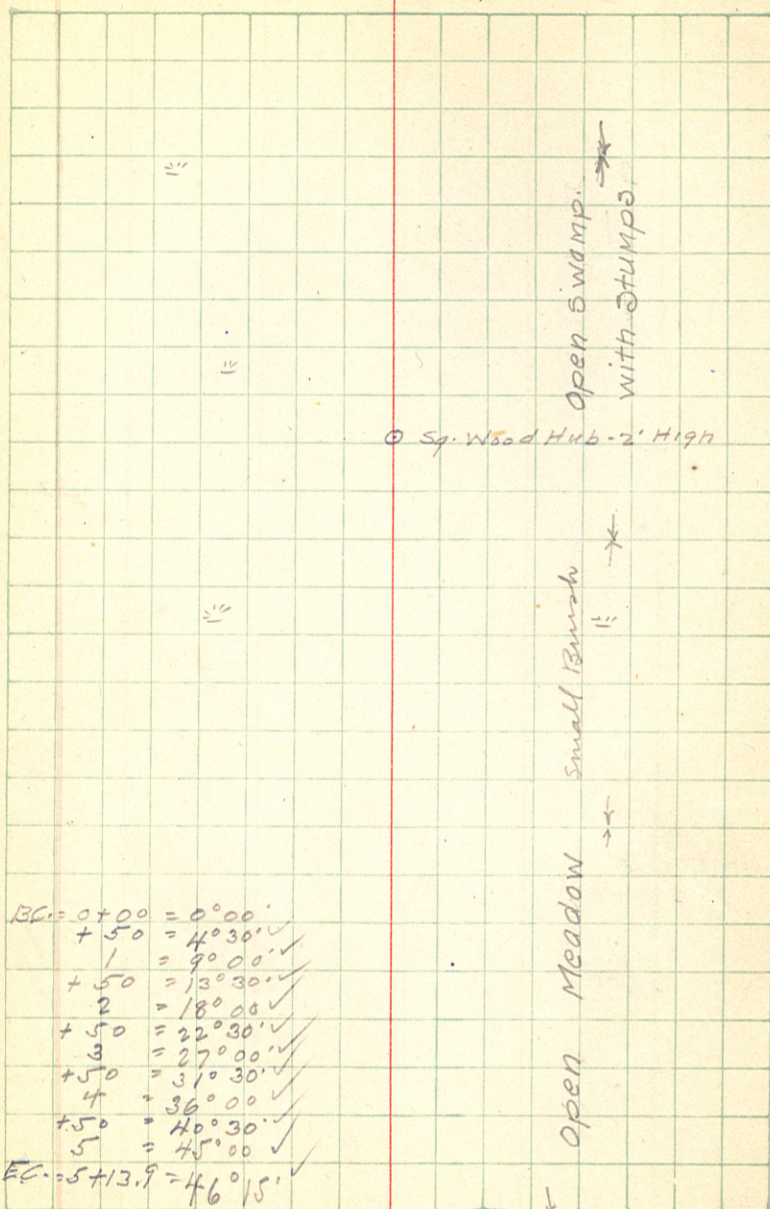 Open Swamp.
with Stumps.
⊙ Sq. Wood Hub - 2' High
Small Brush
Open Meadow
B.C. = 0+00 = 0°00'
+50 = 4°30' ✓
1 = 9°00' ✓
+50 = 13°30' ✓
2 = 18°00 ✓
+50 = 22°30' ✓
3 = 27°00' ✓
+50 = 31°30' ✓
4 = 36°00 ✓
+50 = 40°30' ✓
5 = 45°00 ✓
E.C. = 5+13.9 = 46°15' ✓